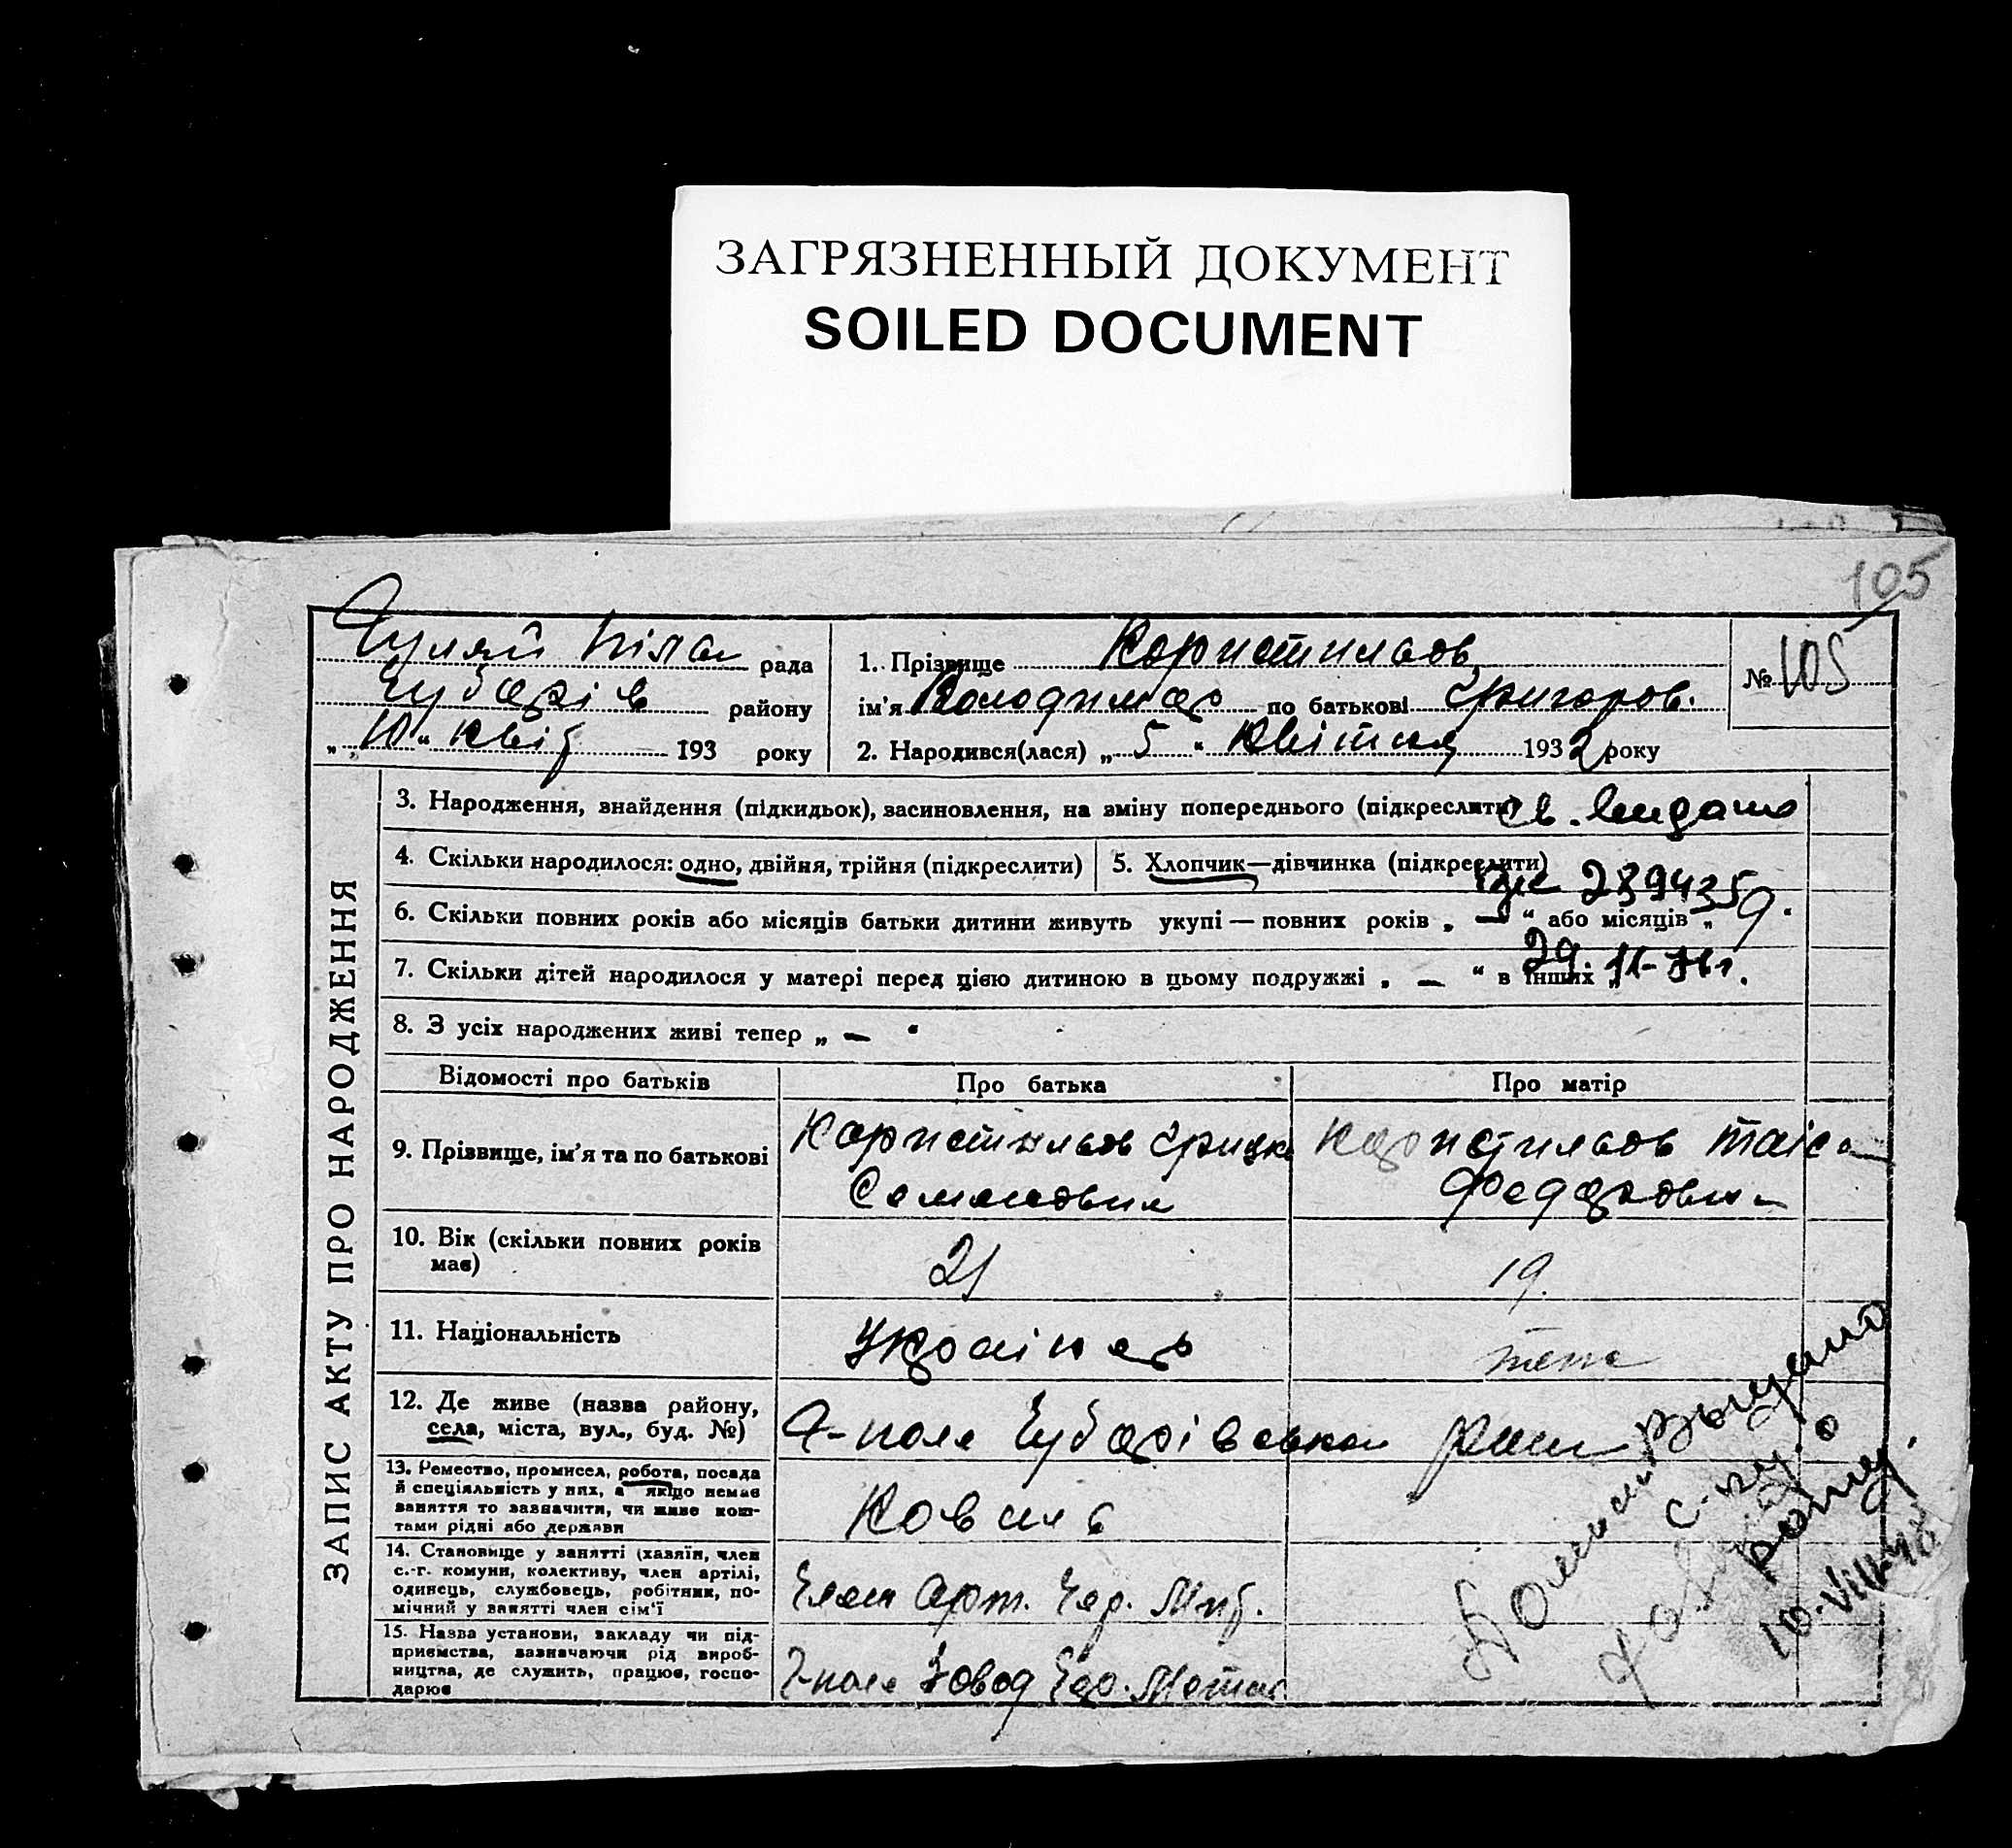 ЗАГРЯЗНЕННЫЙ ДОКУМЕНТ
SOILED DOCUMENT
105
Гуляй Піля рада
Чубарів району
„ 10 “ Квіт 193 року
1. Прізвище Користильов
ім'я Володимер по батькові Григоров.
2. Народився(лася) „ 5 “ Квітня 1932 року
№ 105
ЗАПИС АКТУ ПРО НАРОДЖЕННЯ
3. Народження, знайдення (підкидьок), засиновлення, на зміну попереднього (підкреслити)
4. Скільки народилося: одно, двійня, трійня (підкреслити)
5. Хлопчик—дівчинка (підкреслити)
239435
6. Скільки повних років або місяців батьки дитини живуть укупі — повних років „ — “ або місяців „ 9.
7. Скільки дітей народилося у матері перед цією дитиною в цьому подружжі „ — “ в інших „
8. З усіх народжених живі тепер „ — “
Відомості про батьків Про батька Про матір
9. Прізвище, ім'я та по батькові
Користильов Грицко
Семенович
Користильов Таіса
Федоровна
10. Вік (скільки повних років має)
21
19.
11. Національність
Українець
теж
12. Де живе (назва району,
села, міста, вул., буд. №)
Г-поле Чубарівськой
13. Ремество, промисел, робота, посада
й спеціяльність у них, а якщо немає
заняття то зазначити, чи живе кош-
тами рідні або держави
Коваль
14. Становище у занятті (хазяїн, член
с.-г. комуни, колективу, член артілі,
одинець, службовець, робітник, по-
мічний у занятті член сім'ї
Член Арт.
15. Назва установи, закладу чи під-
приємства, зазначаючи рід вироб-
ництва, де служить, працює, госпо-
дарює
Г-поле Завод
10-VIII-48